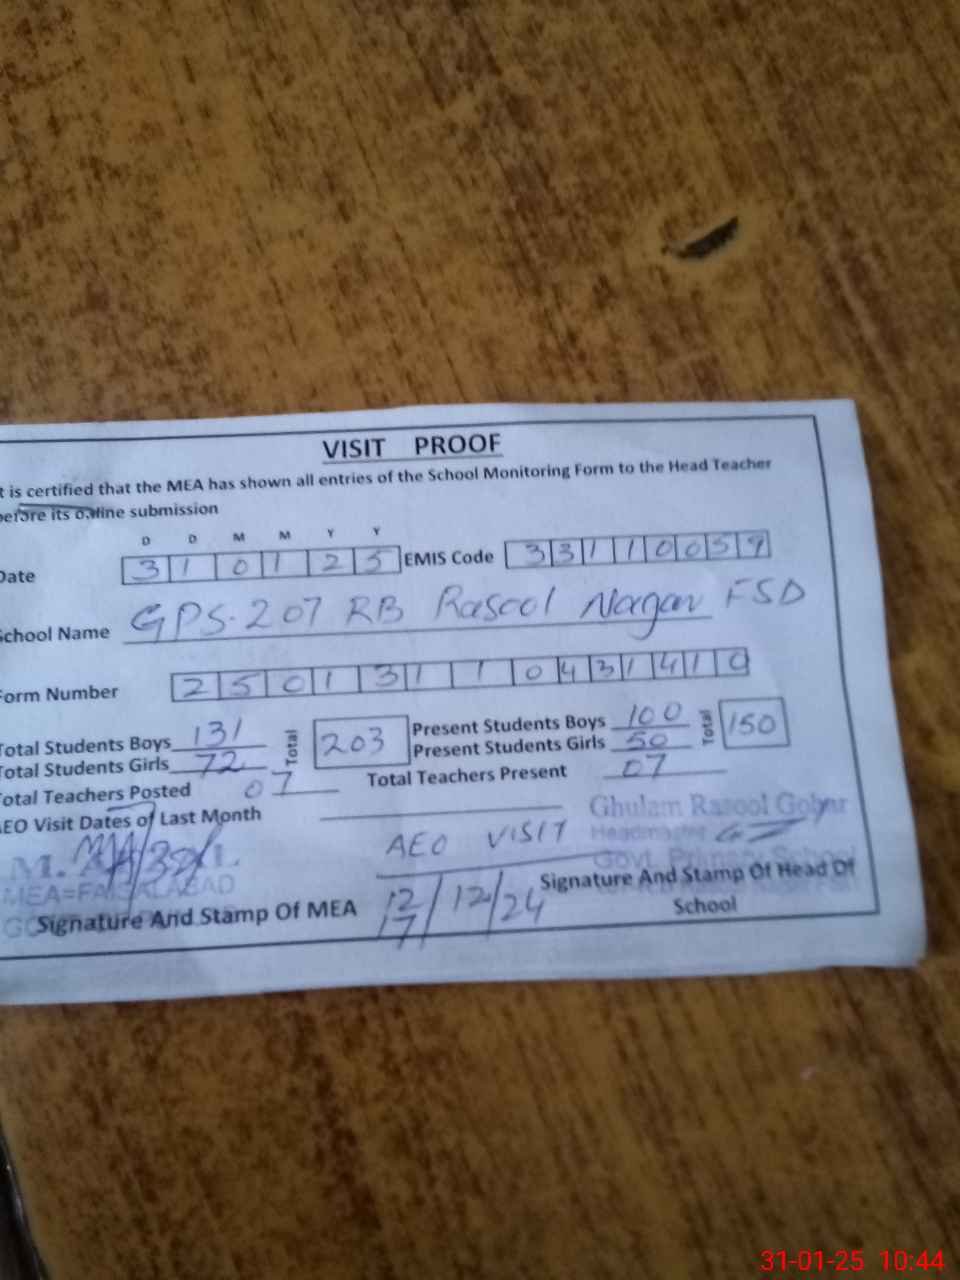 VISIT PROOF
t is certified that the MEA has shown all entries of the School Monitoring Form to the Head Teacher
before its online submission
D D M M Y Y
Date 3 1 0 1 2 5 EMIS Code 3 3 1 1 0 0 5 9
School Name GPS. 207 RB Rasool Nagar FSD
Form Number 2 5 0 1 3 1 1 0 4 3 1 4 1 0
Total Students Boys 131 Total 203 Present Students Boys 100 Total 150
Total Students Girls 72 Present Students Girls 50
Total Teachers Posted 07 Total Teachers Present 07
AEO Visit Dates of Last Month
Ghulam Rasool Gohar
Headmaster
AEO VISIT
Govt. Primary School
MEA=FAISALABAD
Signature And Stamp Of MEA
12/12/24
17
Signature And Stamp Of Head Of
School
31-01-25 10:44